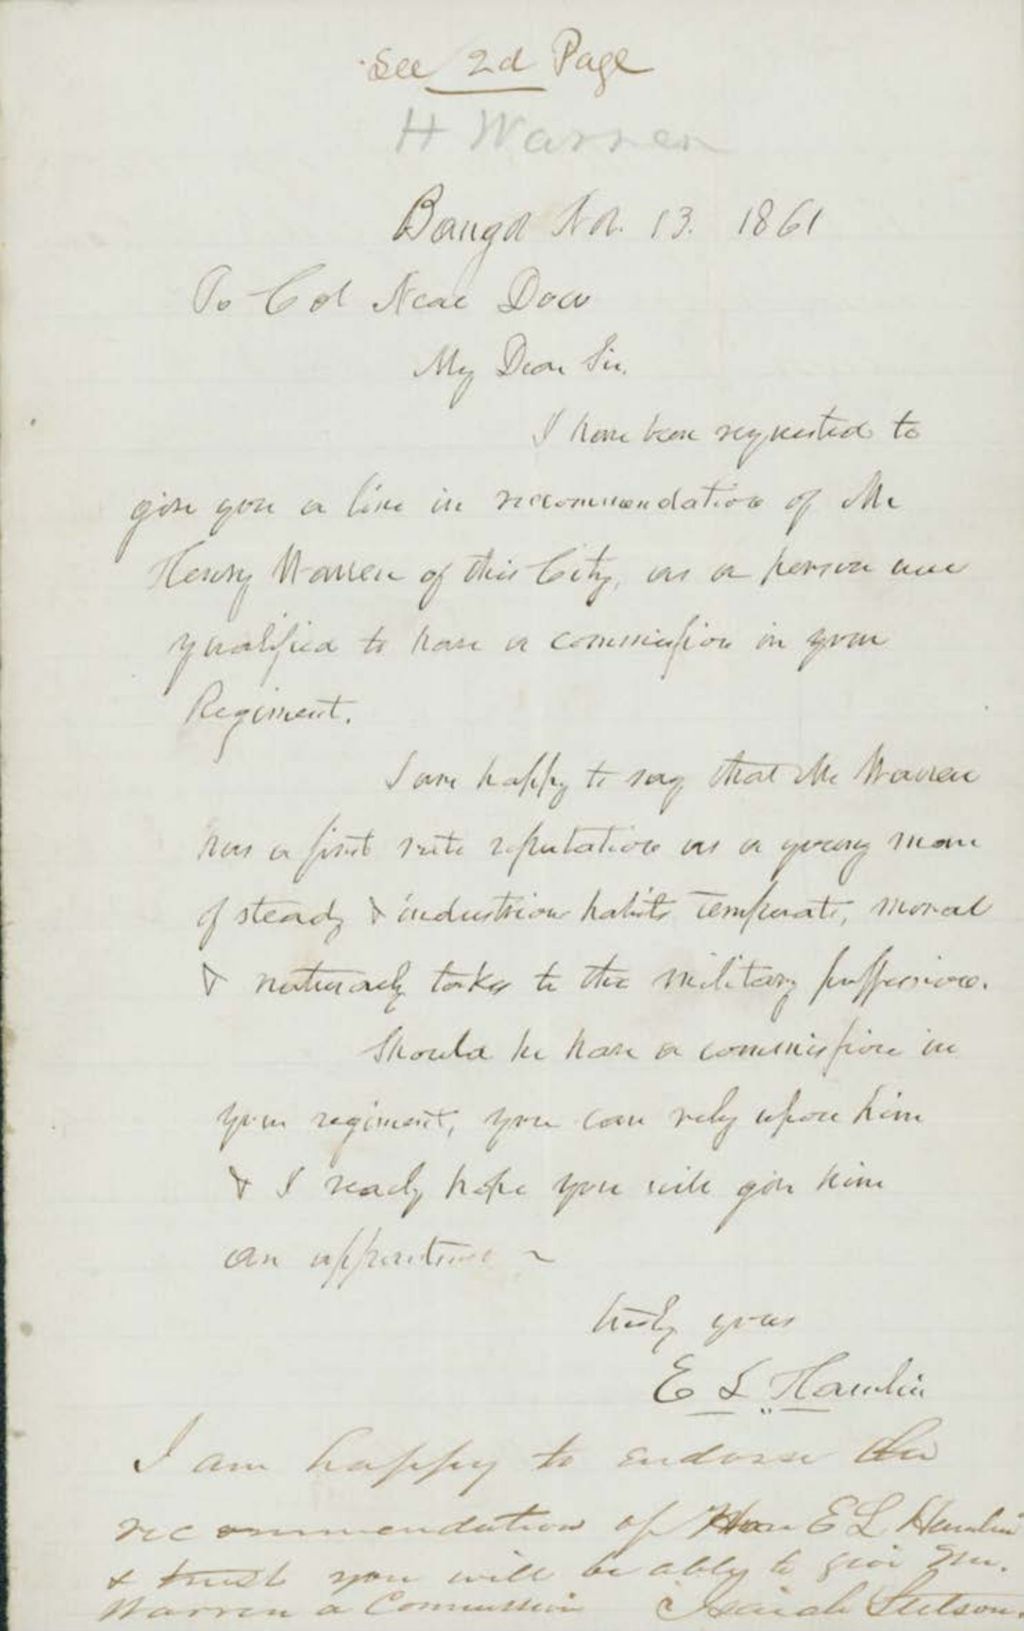 See 2d Page
H Warren
Bangor Nov. 13. 1861
To Col Neal Dow
My Dear Sir.
I have been requested to
give you a line in recommendation of Mr
Henry Warren of this City, as a person well
qualified to have a commission in your
Regiment.
I am happy to say that Mr Warren
has a first rate reputation as a young man
of steady & industrious habits temperate, moral
& naturally takes to the military proffession.
Should he have a commission in
your regiment, you can rely upon him
& I really hope you will give him
an appointment ~
truly yours
E L Hamlin
I am happy to endorse the
recommendation of Hon E L Hamlin
& trust you will be able to give Mr.
Warren a Commission Isaiah Stetson.